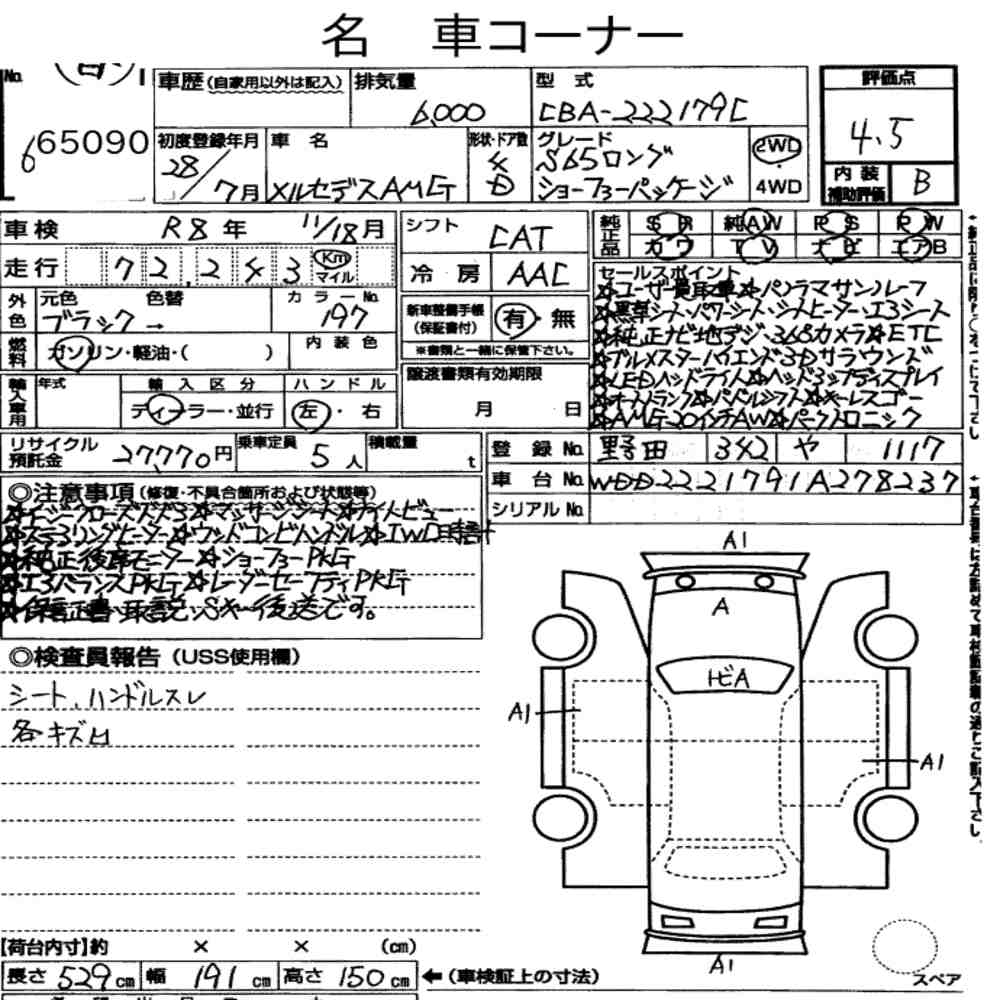 名 車コーナー
No.
65090
車歴 (自家用以外は記入)
排気量
6,000
型 式
CBA-222179C
評価点
4.5
初度登録年月
28/7月
車 名
メルセデスAMG
形状・ドア数
4
D
グレード
S65ロング
ショーファーパッケージ
2WD
4WD
内 装
補助評価
B
車検 R8年 11/18月
シフト
CAT
純正品
S R 純AW P S P W
カワ T V ナビ エアB
走行 72,243 Km マイル
冷 房 AAC
外色
元色 色替
ブラック →
カラーNo.
197
新車整備手帳
(保証書付)
有・無
※書類と一緒に保管下さい。
燃料
ガソリン・軽油・( )
内 装 色
セールスポイント
☆ユーザー買取車☆パノラマサンルーフ
☆黒革シート・パワーシート・シートヒーター・エコシート
☆純正ナビ地デジ・360カメラ☆ETC
☆ブルメスターハイエンド3Dサラウンド
☆LEDヘッドライト☆ヘッドアップディスプレイ
☆オートトランク☆パドルシフト☆キーレスゴー
☆AMG20インチAW☆パークトロニック
輸入車用
年式
輸 入 区 分
ディーラー・並行
ハ ン ド ル
左・右
譲渡書類有効期限
月 日
リサイクル
預託金
27,770円
乗車定員
5人
積載量
t
登 録 No.
野田 342 や 1117
車 台 No.
WDD2221791A278237
シリアル No.
◎注意事項 (修復・不具合箇所および状態等)
☆イージークローズドア☆マッサージシート☆ナイトビュー
☆ステアリングヒーター☆ウッドコンビハンドル☆IWD時計
☆純正後席モニター☆ショーファーPKG
☆エアバランスPKG☆レーダーセーフティPKG
☆保証書・取説・Sキー後送です。
◎検査員報告 (USS使用欄)
シート、ハンドルスレ
各キズ凹
A1
A
トビA
A1
A1
A1
スペア
【荷台内寸】約 × × (cm)
長さ 529 cm 幅 191 cm 高さ 150 cm ←(車検証上の寸法)